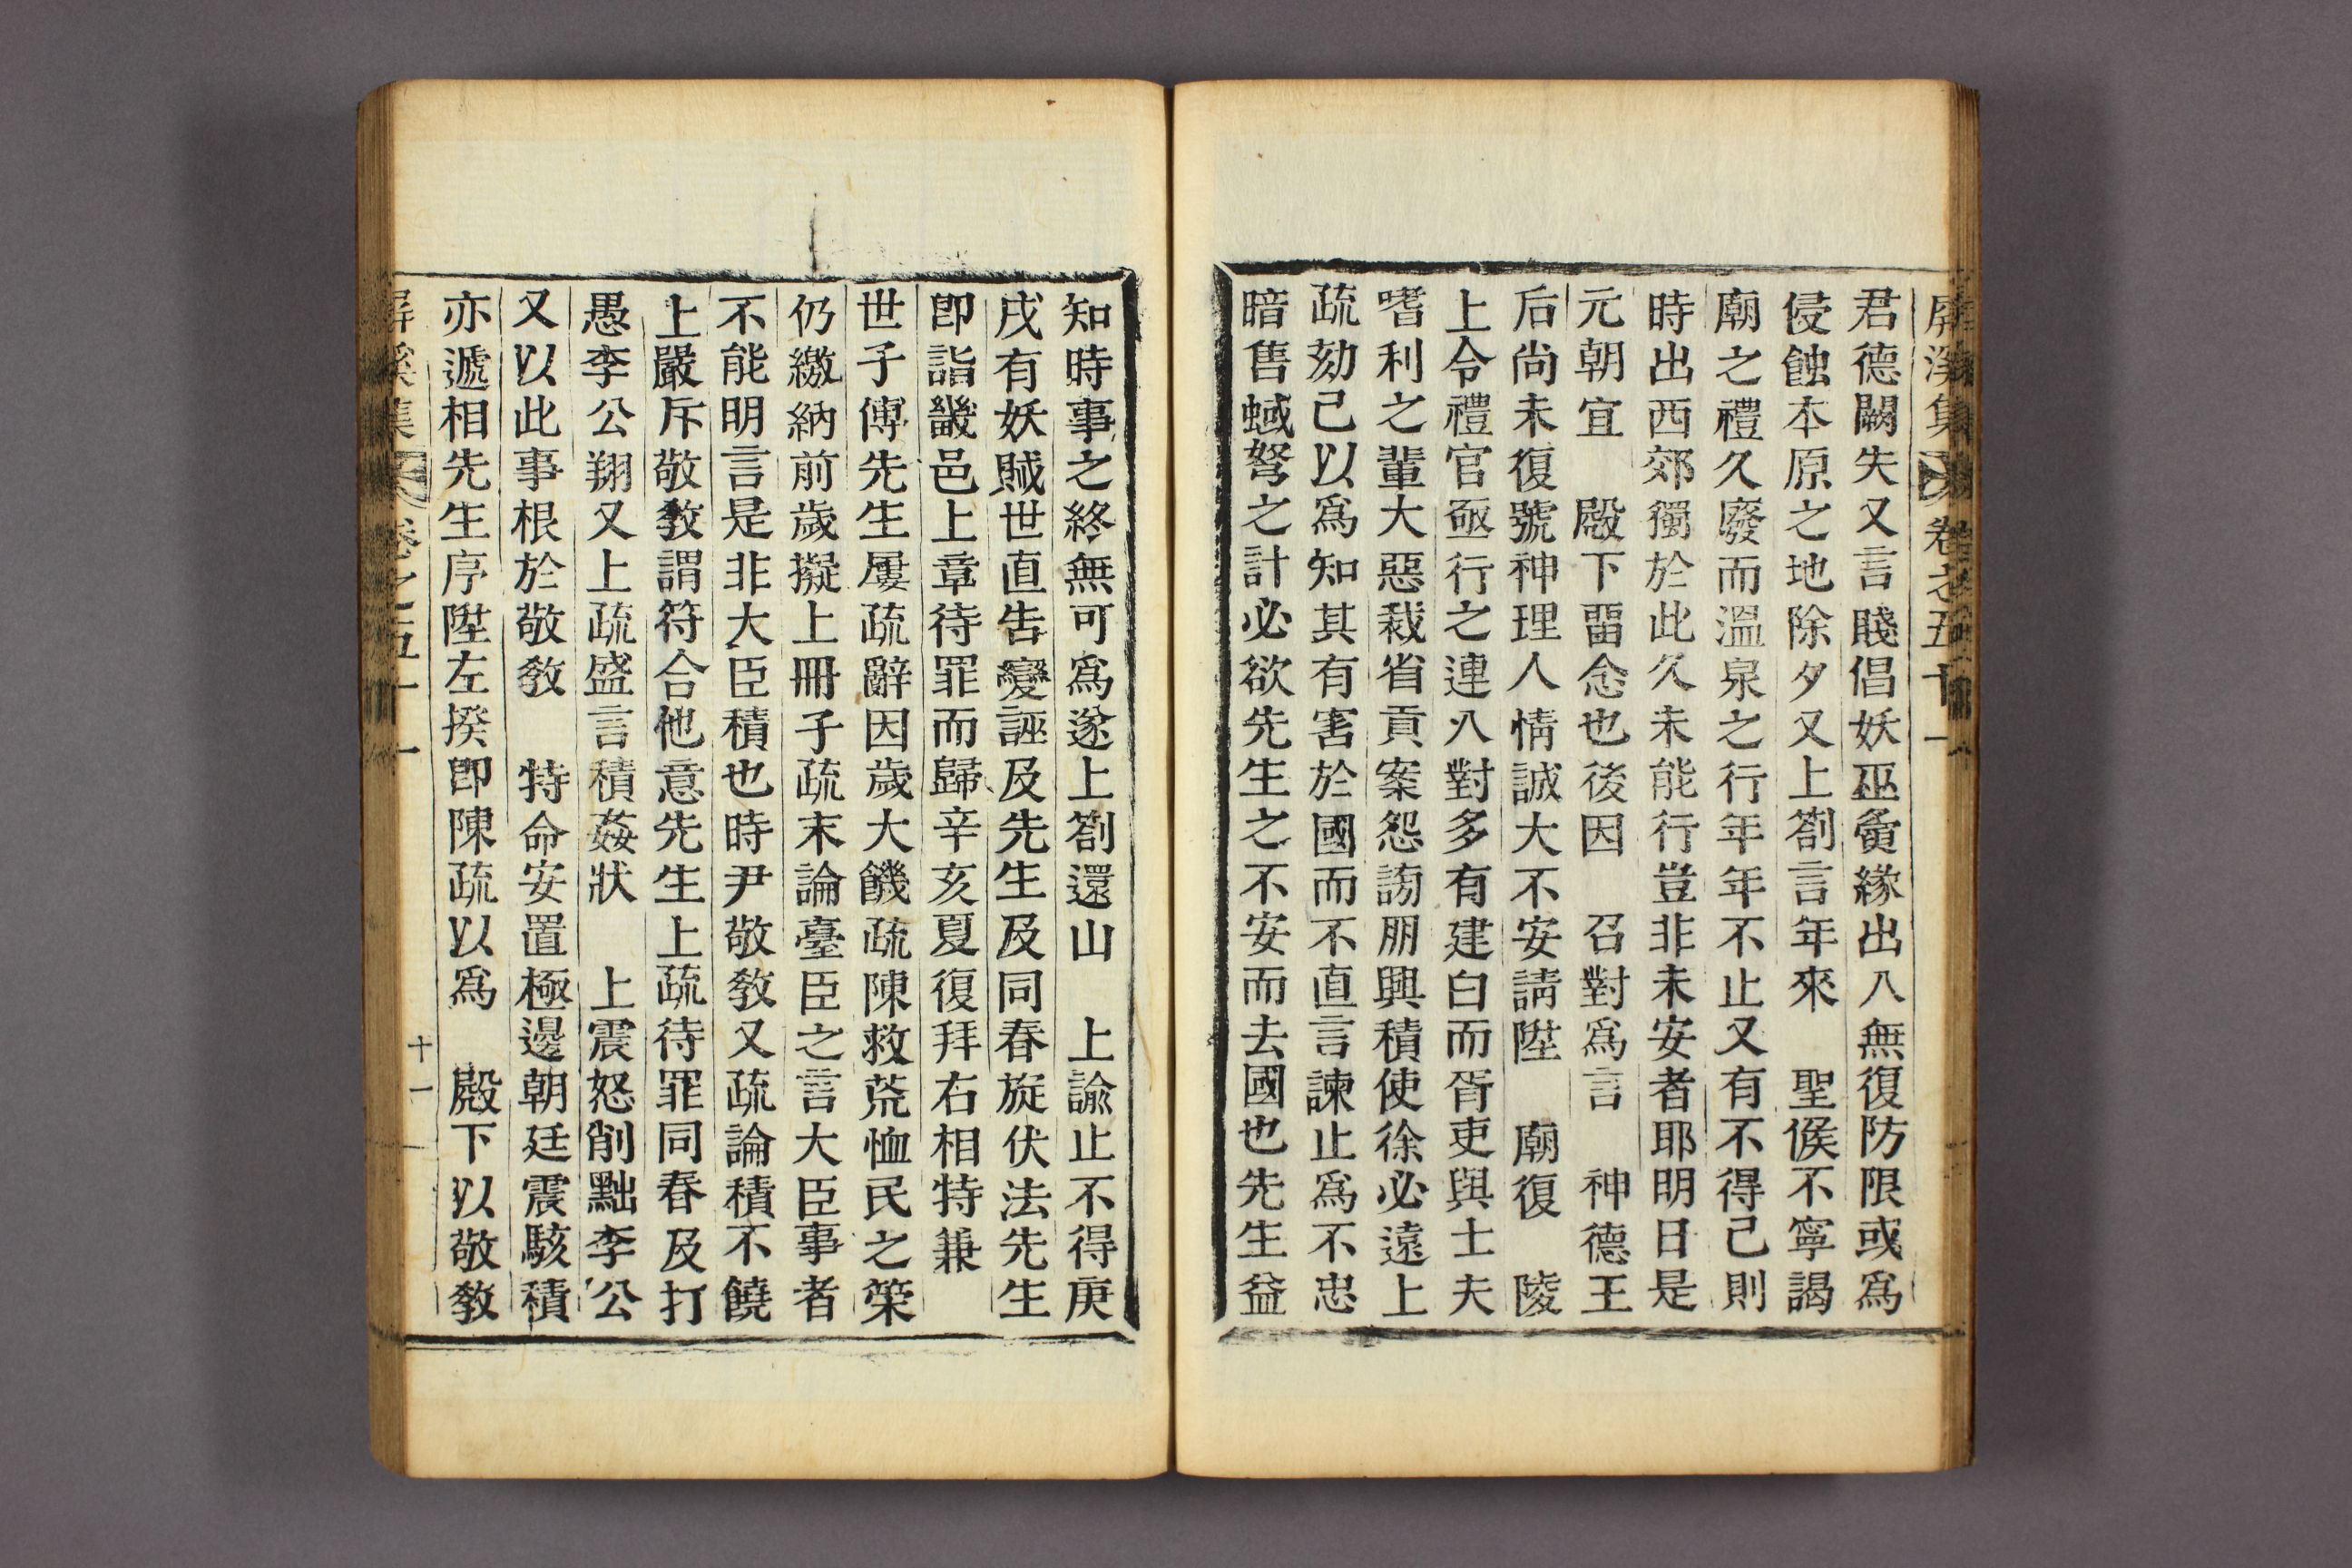 屏溪集 卷之五十一
君德闕失又言賤倡妖巫夤緣出入無復防限或爲
侵蝕本原之地除夕又上箚言年來 聖候不寧謁
廟之禮久廢而溫泉之行年年不止又有不得已則
時出西郊獨於此久未能行豈非未安者耶明日是
元朝宜 殿下留念也後因 召對爲言 神德王
后尙未復號神理人情誠大不安請陞 廟復 陵
上令禮官亟行之連入對多有建白而胥吏與士夫
嗜利之輩大惡裁省貢案怨謗朋興積使徐必遠上
疏劾己以爲知其有害於國而不直言諫止爲不忠
暗售蜮弩之計必欲先生之不安而去國也先生益
知時事之終無可爲遂上箚還山 上諭止不得庚
戌有妖賊世直告變誣及先生及同春旋伏法先生
卽詣畿邑上章待罪而歸辛亥夏復拜右相特兼
世子傅先生屢疏辭因歲大饑疏陳救荒恤民之策
仍繳納前歲擬上冊子疏末論臺臣之言大臣事者
不能明言是非大臣積也時尹敬敎又疏論積不饒
上嚴斥敬敎謂符合他意先生上疏待罪同春及打
愚李公翔又上疏盛言積姦狀 上震怒削黜李公
又以此事根於敬敎 特命安置極邊朝廷震駭積
亦遞相先生序陞左揆卽陳疏以爲 殿下以敬敎
屏溪集 卷之五十一 十一